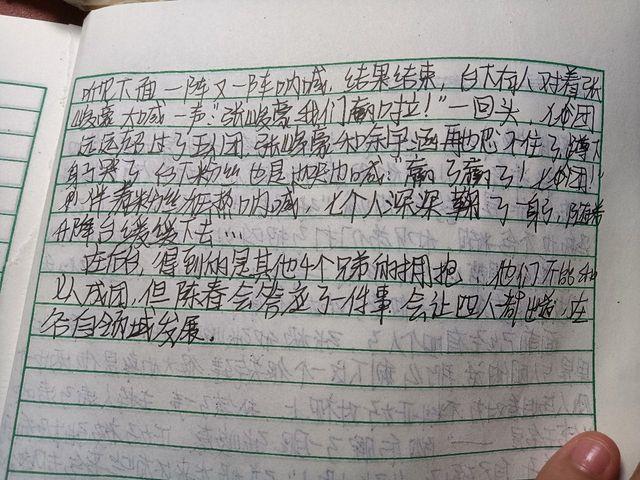 听见下面一阵又一阵呐喊，结果结束，台下有人对着张
峻豪大喊一声“张峻豪我们赢对拉！”一回头，火必团
远远超过了亚团，张峻豪和余宇涵再也忍不住了蹲下
身子哭了，台下粉丝也是地哭地喊：“赢了赢了！火必团！”
伴着粉丝狂热呐喊，七个人深深鞠了一躬，随着
升降台缓缓下去…
在后台，得到的是其他4个兄弟的拥抱，他们不能和
人成团，但陈春会答应了一件事，会让四人都出道，在
各自领域发展.